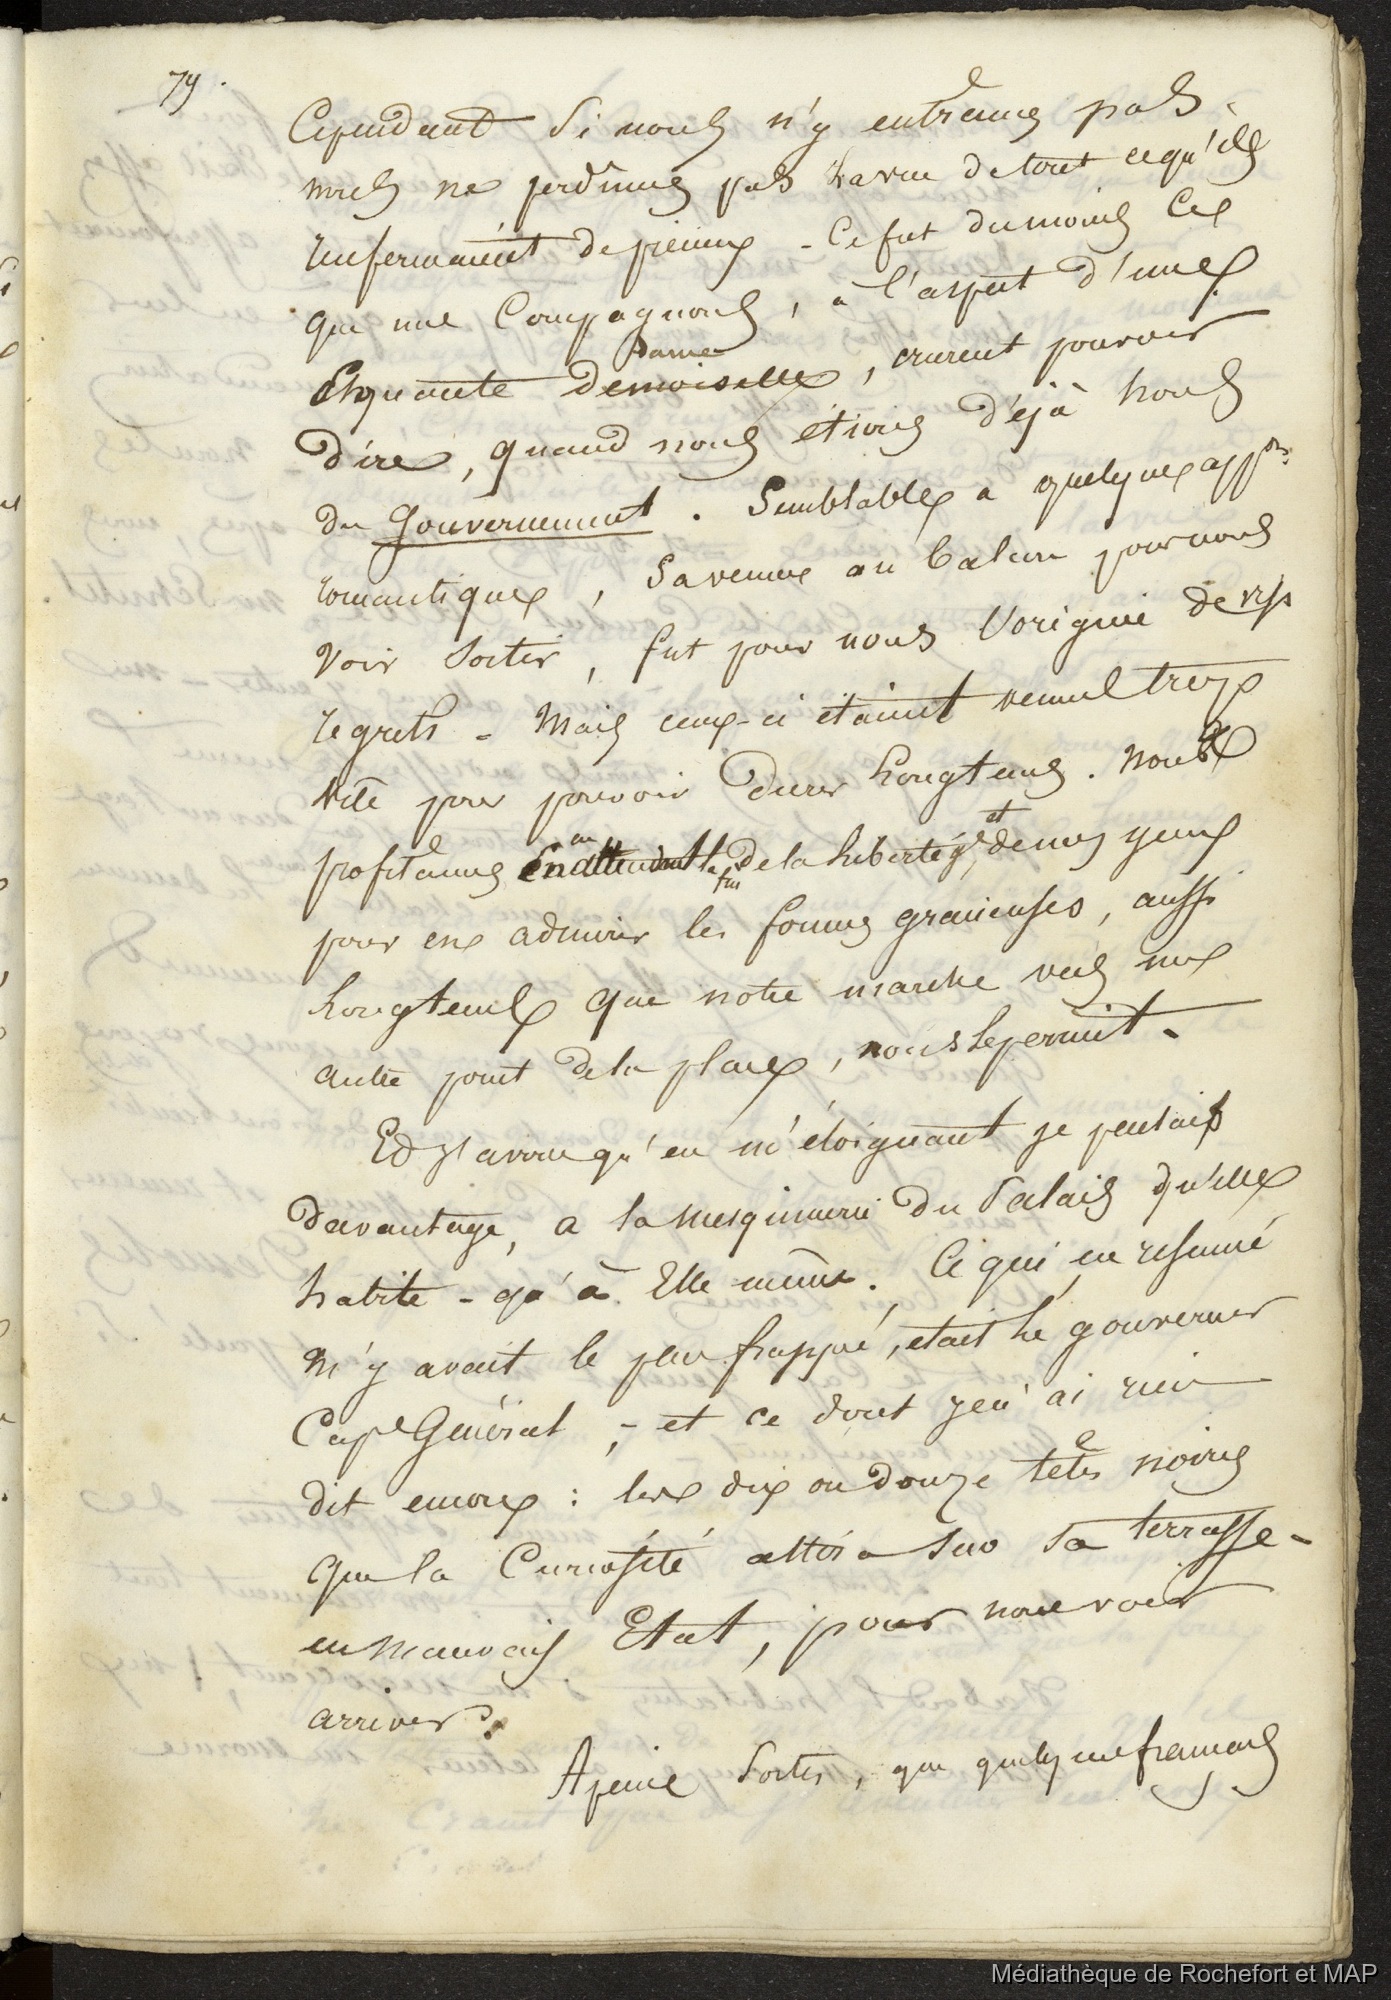 79.
Cependant si nous n'y entrâmes pas
nous ne perdîmes pas la vue de tout ce qu'ils
renfermaient de précieux - Ce fut du moins Ce
que mes Compagnons, à l'aspect d'une
Eléquante demoiselle, crurent pouvoir
dame
dire, quand nous étions déjà hors
du Gouvernement. Semblable à quelque app.on
romantique, sa venue au balcon pour nous
voir sortir, fut pour nous l'origine de vifs
regrets - Mais ceux-ci étaient venus trop
vite pour pouvoir durer longtems. Nous
profitâmes de la liberté et de nos yeux
pour en admirer les formes gracieuses, aussi
longtems que notre marche vers un
autre point de la place, nous le permit.
Et j'avoue qu'en m'éloignant je pensais
davantage, a la mesquinerie du Palais qu'elle
habite - qu'à Elle même. Ce qui en resumé
m'y avait le plus frappé, etait le gouverneur
Cap.e Général, - et ce dont je n'ai rien
dit encore : les dix ou douze têtes noires
que la Curiosité attira sur sa terrasse -
en mauvais Etat, pour nous voir
arriver.
A peine sortis, que quelques français
Médiathèque de Rochefort et MAP